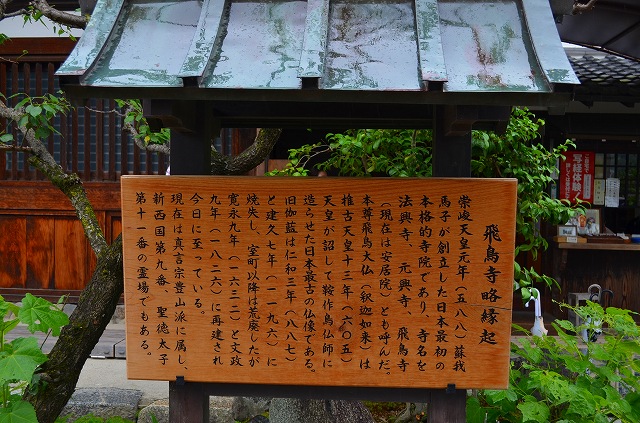 飛鳥寺略縁起
崇峻天皇元年（五八八）蘇我
馬子が創立した日本最初の
本格的寺院であり、寺名を
法興寺、元興寺、飛鳥寺
（現在は安居院）とも呼んだ。
本尊飛鳥大仏（釈迦如来）は
推古天皇十三年（六〇五）
天皇が詔して鞍作鳥仏師に
造らせた日本最古の仏像である。
旧伽藍は仁和三年（八八七）
と建久七年（一一九六）に
焼失し、室町以降は荒廃したが
寛永九年（一六三二）と文政
九年（一八二六）に再建され
今日に至っている。
現在は真言宗豊山派に属し、
新西国第九番、聖徳太子
第十一番の霊場でもある。
写経体験